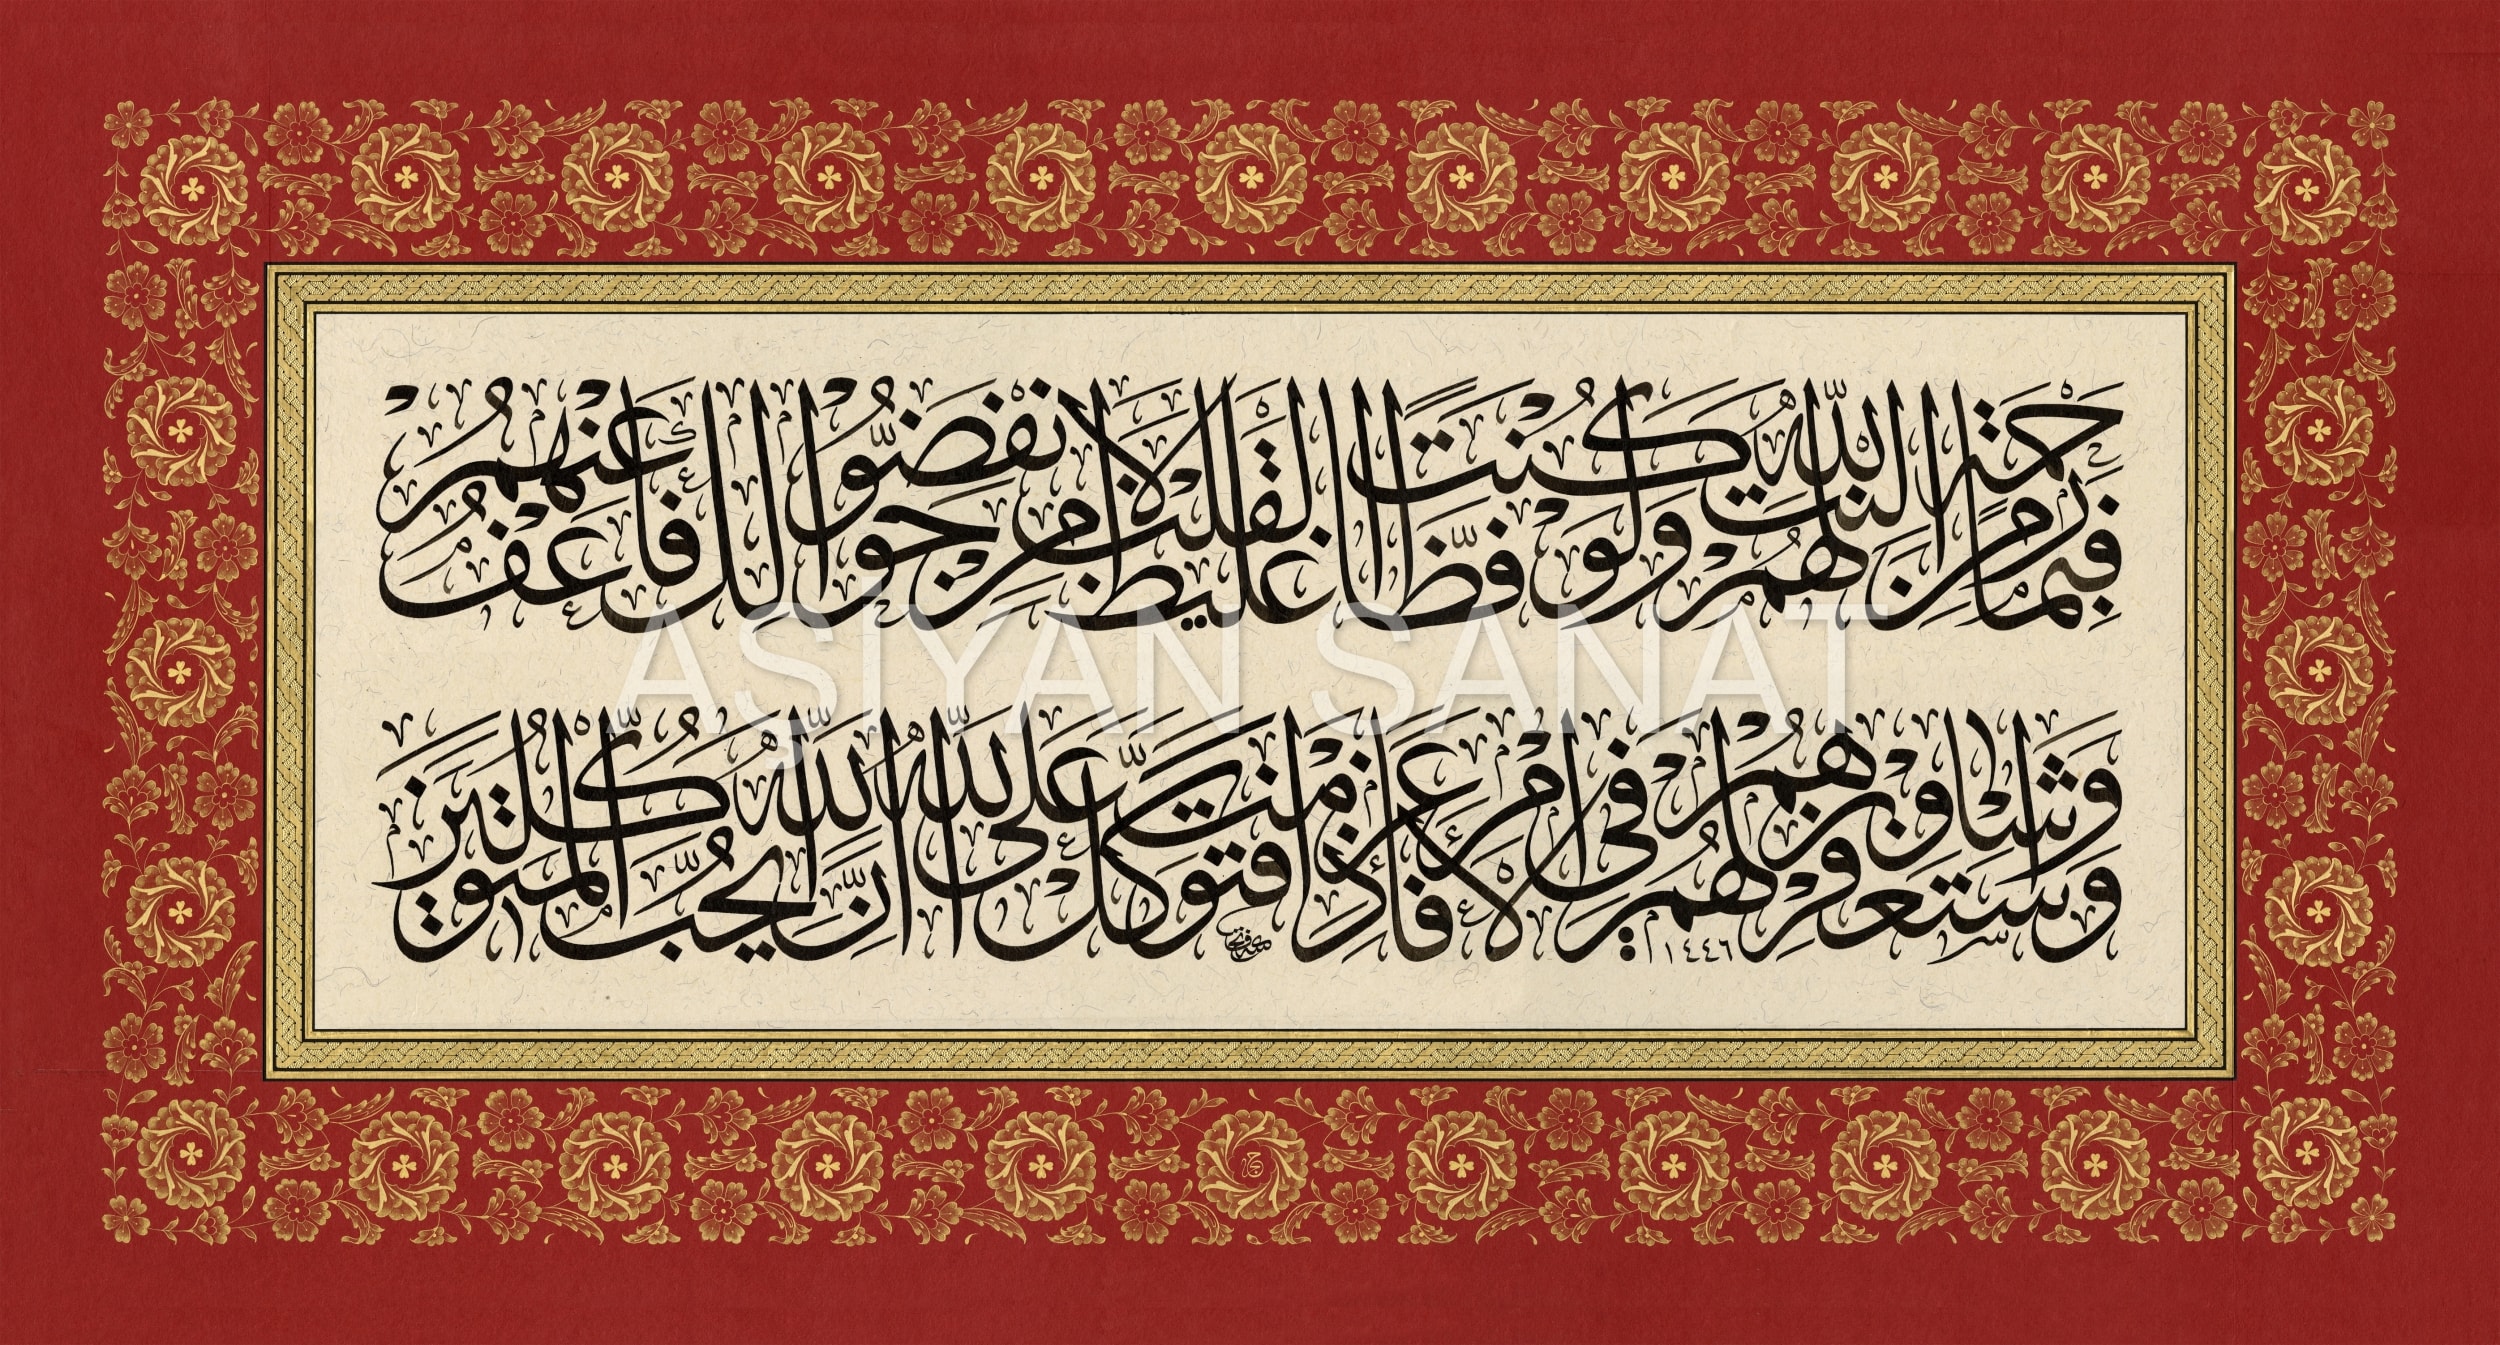 فَبِمَا رَحْمَةٍ مِنَ اللّٰهِ لِنْتَ لَهُمْ وَلَوْ كُنْتَ فَظًّا غَلِيظَ الْقَلْبِ لَانْفَضُّوا مِنْ حَوْلِكَ فَاعْفُ عَنْهُمْ
ASİYAN SANAT
وَاسْتَغْفِرْ لَهُمْ وَشَاوِرْهُمْ فِي الْأَمْرِ فَإِذَا عَزَمْتَ فَتَوَكَّلْ عَلَى اللّٰهِ إِنَّ اللّٰهَ يُحِبُّ الْمُتَوَكِّلِينَ
١٤٤٦